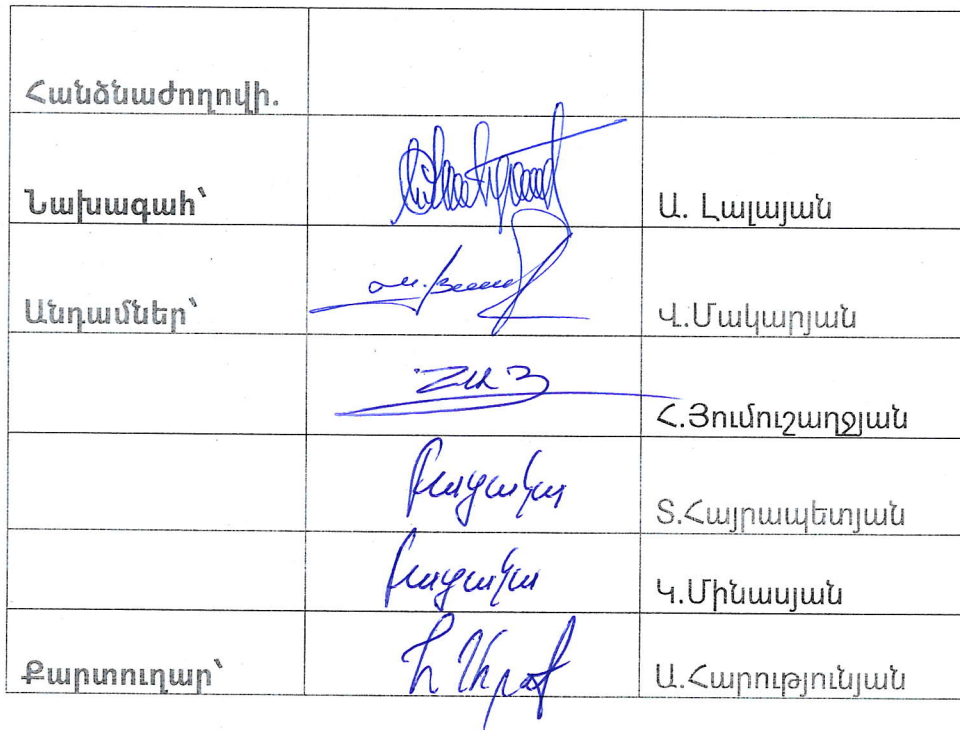 Հանձնաժողովի.
Նախագահ՝ Ա. Լալայան
Անդամներ՝ Վ.Մակարյան
Հ.Յումուշաղջյան
բացակա Տ.Հայրապետյան
բացակա Կ.Մինասյան
Քարտուղար՝ Ա.Հարությունյան